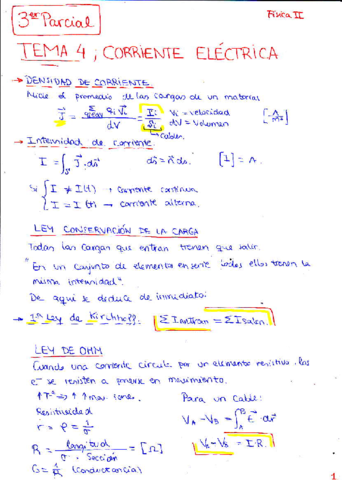 3er Parcial
Física II
TEMA 4; CORRIENTE ELÉCTRICA
→ DENSIDAD DE CORRIENTE
Mide el promedio de las cargas de un material
J⃗ = Σ qi V⃗i / dV = Ii / Si
Vi = velocidad
dV = Volumen
[A/m²]
→ Cables.
→ Intensidad de corriente.
I = ∫s J⃗ · ds⃗    ds⃗ = n⃗ ds.    [I] = A.
Si { I ≠ I(t) → corriente continua
I = I(t) → corriente alterna.
LEY CONSERVACIÓN DE LA CARGA
Todas las cargas que entran tienen que salir.
"En un conjunto de elementos en serie todos ellos tienen la
misma intensidad".
De aquí se deduce de inmediato:
→ 1ª Ley de Kirchhoff.    Σ I entran = Σ I salen.
LEY DE OHM
Cuando una corriente circula por un elemento resistivo, los
e⁻ se resisten a ponerse en movimiento.
↑Tª ⇒ ↑ ↑ mov. iones.    Para un Cable:
Resistividad
r = ρ = 1/σ    VA - VB = ∫A^B E⃗ · dr⃗
R = longitud / σ · Sección = [Ω]    = I · R.
G = 1/R (Conductancia)
1